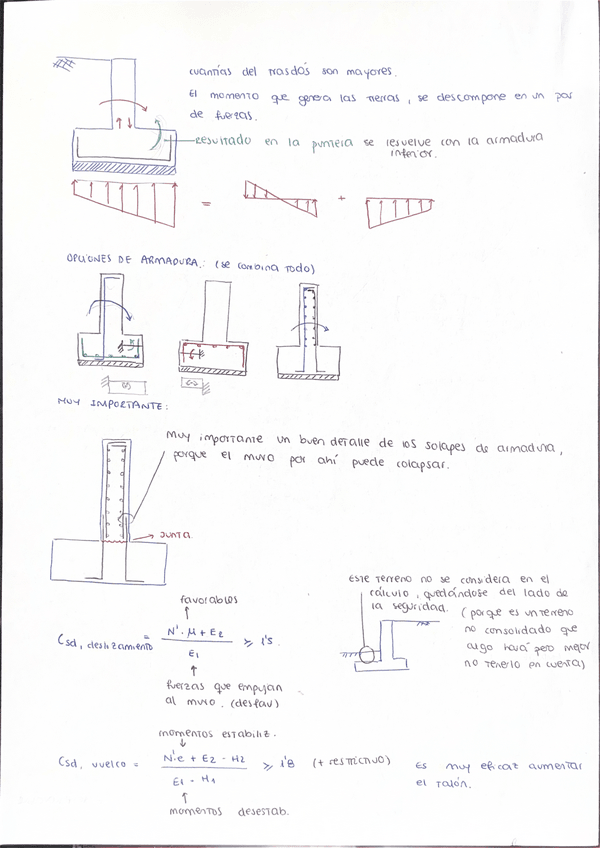 cuantías del trasdós son mayores.
El momento que genera las tierras, se descompone en un par
de fuerzas.
Resultado en la puntera se resuelve con la armadura
inferior.
= +
OPCIONES DE ARMADURA: (se combina todo)
MUY IMPORTANTE:
Muy importante un buen detalle de los solapes de armadura,
porque el muro por ahí puede colapsar.
JUNTA
Este terreno no se considera en el
cálculo, quedándose del lado de
la seguridad.
(porque es un terreno
no consolidado que
algo hará pero mejor
no tenerlo en cuenta)
favorables
Csd, deslizamiento = N'·μ + E2 / E1 ≥ 1'5
fuerzas que empujan
al muro. (desfav)
momentos estabiliz.
Csd, vuelco = N'·e + E2 · H2 / E1 · H1 ≥ 1'8 (+ restrictivo)
momentos desestab.
Es muy eficaz aumentar
el talón.